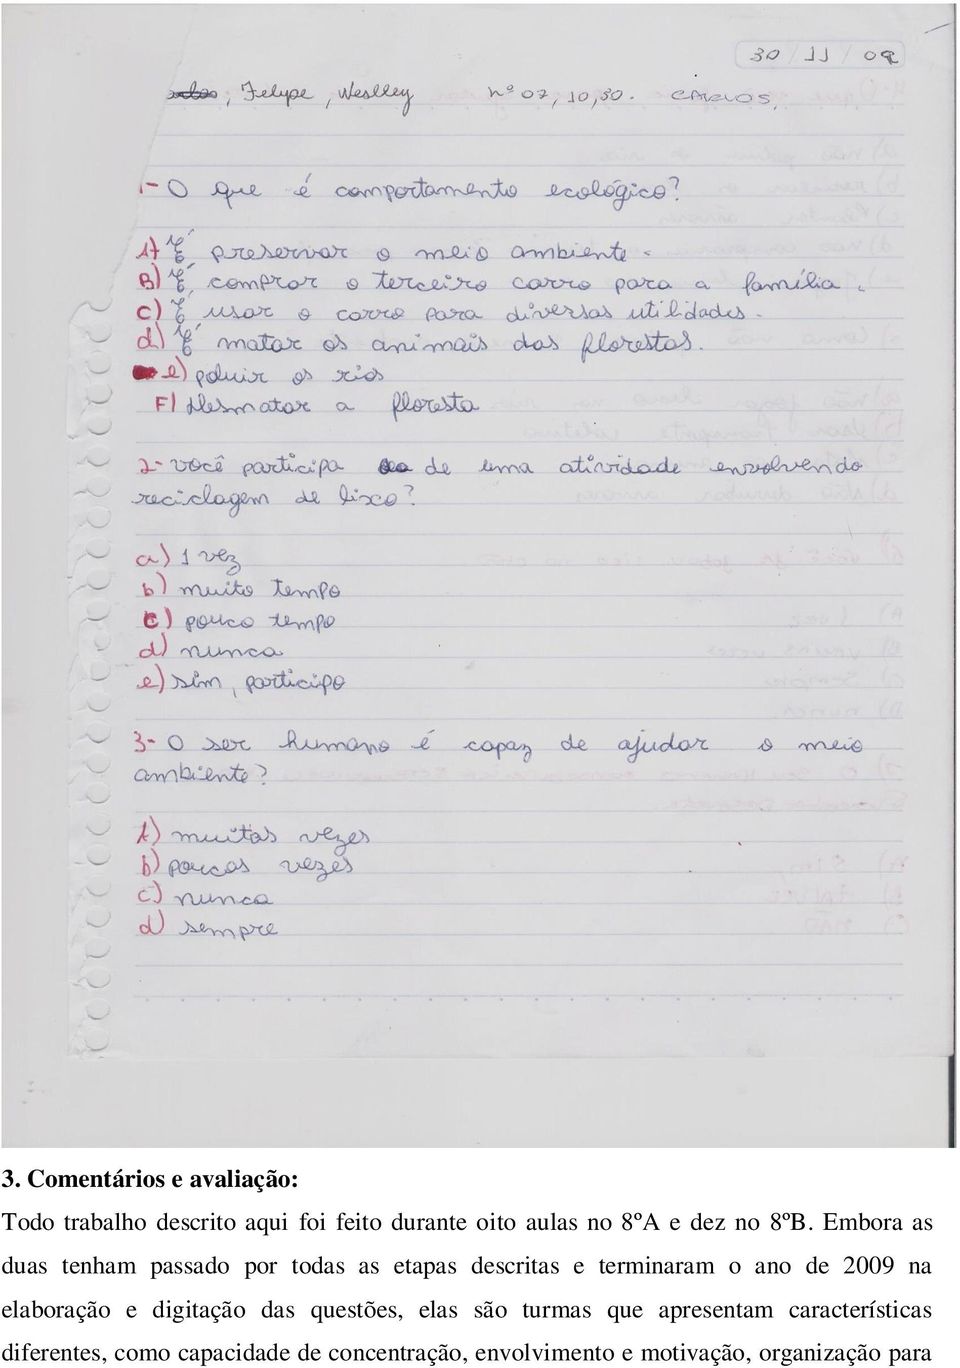 30/11/09
, Felype, Weslley nº 07, 10, 30. CARLOS.
1- O que é comportamento ecológico?
A) É preservar o meio ambiente.
B) É comprar o terceiro carro para a família.
C) É usar o carro para diversas utilidades.
d) É matar os animais das florestas.
e) poluir os rios
F) desmatar a floresta
2- você participa de uma atividade envolvendo
reciclagem de lixo?
a) 1 vez
b) muito tempo
c) pouco tempo
d) nunca
e) sim, participo
3- O ser humano é capaz de ajudar o meio
ambiente?
A) muitas vezes
b) poucas vezes
C) nunca
d) sempre
3. Comentários e avaliação:
Todo trabalho descrito aqui foi feito durante oito aulas no 8ºA e dez no 8ºB. Embora as
duas tenham passado por todas as etapas descritas e terminaram o ano de 2009 na
elaboração e digitação das questões, elas são turmas que apresentam características
diferentes, como capacidade de concentração, envolvimento e motivação, organização para